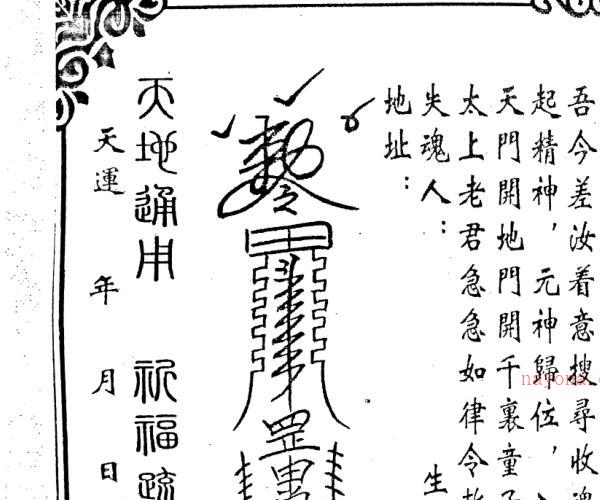 吾今差汝着意搜尋收魂
起精神，元神歸位，
天門開地門開千裏童子
太上老君急急如律令
失魂人：
生
地址：
敕令
罡
天地通用 祈福疏
天運 年 月 日
nayona.c